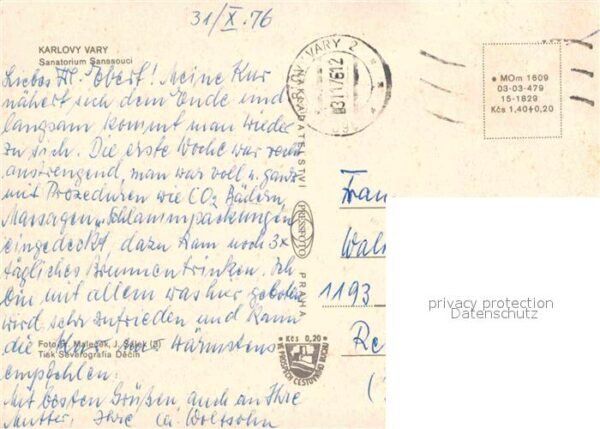 31/X.76
KARLOVY VARY
Sanatorium Sanssouci
Liebes Frl. Ebert! Meine Kur
nähert sich dem Ende und
langsam kommt man wieder
zu sich. Die erste Woche war recht
anstrengend, man war voll u. ganz
mit Prozeduren wie CO2 Bädern,
Massagen, Schlammpackungen
eingedeckt, dazu kam noch 3x
tägliches Brunnentrinken. Ich
bin mit allem was hier geboten
wird, sehr zufrieden und kann
die Kur nur wärmstens
empfehlen.
Mit besten Grüßen auch an Ihre
Mutter, Ihre
Foto J. Sálek (2)
Tisk Severografia Děčín
NAKLADATELSTVÍ
PRESSFOTO
PRAHA
VARY 2
• MOm 1609
03-03-479
15-1829
Kčs 1,40+0,20
Kčs 0,20
VE PROSPĚCH CESTOVNÍHO RUCHU
Fran
Wal
1193
Re
privacy protection
Datenschutz